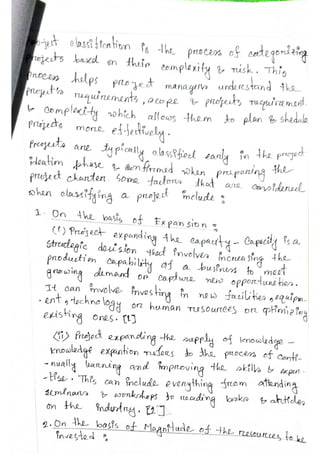 Project classification is the process of categorizing
projects based on their complexity & risk. This
process helps project managers understand the
project's requirements, scope & projects requirement
& complexity which allows them to plan & shedule
projects more effectively.
Projects are typically classified early in the project
ideation phase & confirmed when preparing the
project charter. Some factors that are considered
when classifying a project include :
1. On the basis of Expansion :
(i) Project expanding the capacity - Capacity is a
strategic decision that involves increasing the
production capability of a business to meet
growing demand or capture new opportunities.
It can involve investing in new facilities, equipm-
-ent, technology or human resources or optimizing
existing ones. [1]
(ii) Project expanding the supply of knowledge -
knowledge expantion refers to the process of conti-
-nually learning and improving the skills & exper-
-tise. This can include everything from attending
seminars & workshops to reading books & articles
on the industry. [2]
2. On the basis of Magnitude of the resources to be
invested :